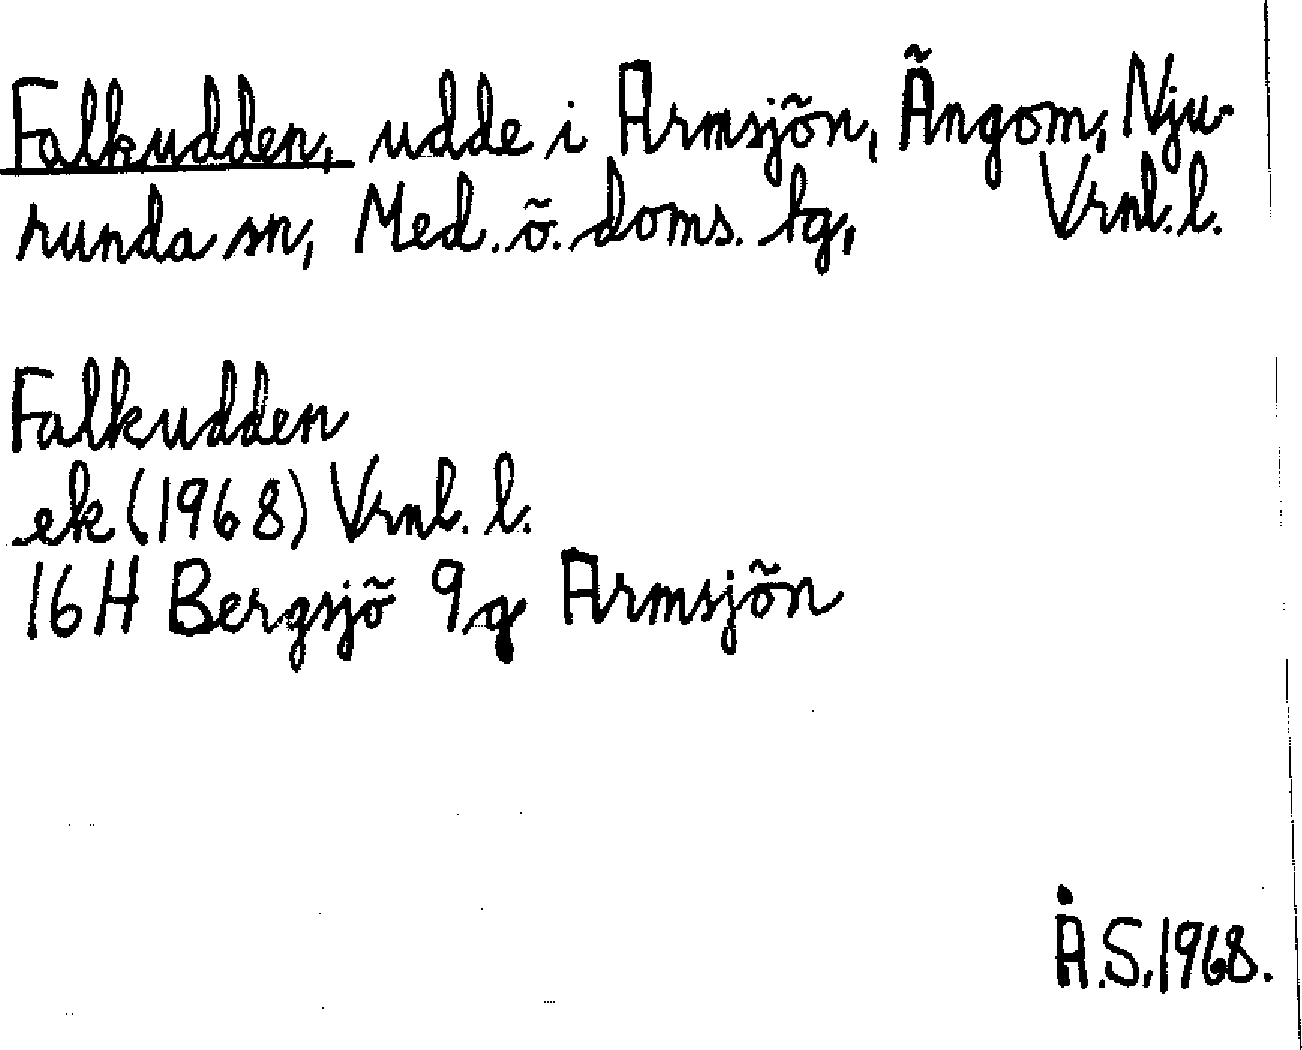 Falkudden, udde i Armsjön, Ängom, Nju-
runda sn, Med. ö. doms. tg, Vrnl. l.
Falkudden
ek (1968) Vrnl. l.
16H Bergsjö 9g Armsjön
Å.S. 1968.